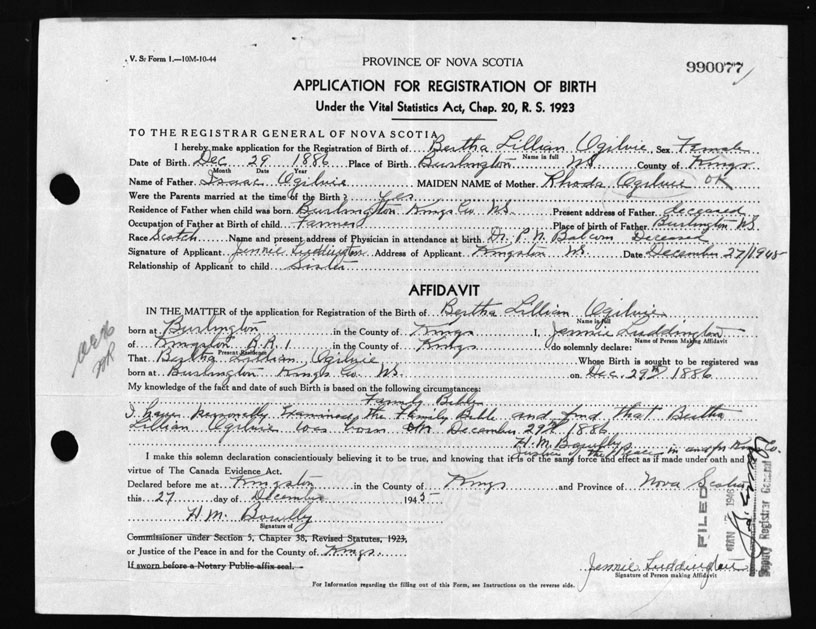 V. S. Form 1.—10M-10-44
PROVINCE OF NOVA SCOTIA
990077
APPLICATION FOR REGISTRATION OF BIRTH
Under the Vital Statistics Act, Chap. 20, R. S. 1923
TO THE REGISTRAR GENERAL OF NOVA SCOTIA
I hereby make application for the Registration of Birth of Bertha Lillian Ogilvie Sex Female
Name in full
Date of Birth Dec 29 1886 Place of Birth Burlington NS County of Kings
Month Date Year
Name of Father Isaac Ogilvie MAIDEN NAME of Mother Rhoda Ogilvie OK
Were the Parents married at the time of the Birth? Yes
Residence of Father when child was born Burlington Kings Co. NS Present address of Father deceased
Occupation of Father at Birth of child Farmer Place of birth of Father Burlington NS
Race Scotch Name and present address of Physician in attendance at birth Dr. P. N. Balcom Deceased
Signature of Applicant Jennie Luddington Address of Applicant Kingston NS. Date December 27/1945
Relationship of Applicant to child Sister
AFFIDAVIT
IN THE MATTER of the application for Registration of the Birth of Bertha Lillian Ogilvie
Name in full
born at Burlington in the County of Kings I, Jennie Luddington
Name of Person Making Affidavit
of Kingston R.R.1 in the County of Kings do solemnly declare:
Present Residence
That Bertha Lillian Ogilvie Whose Birth is sought to be registered was
born at Burlington Kings Co. NS. on Dec. 29th 1886
My knowledge of the fact and date of such Birth is based on the following circumstances:
Family Bible
I have personally Examined the Family Bible and find that Bertha
Lillian Ogilvie was born on December 29th 1886
H. M. Bowlby
Justice of the Peace in and for Kings Co.
I make this solemn declaration conscientiously believing it to be true, and knowing that it is of the same force and effect as if made under oath and by
virtue of The Canada Evidence Act.
Declared before me at Kingston in the County of Kings and Province of Nova Scotia
this 27 day of December 1945
H. M. Bowlby
Signature of
Commissioner under Section 5, Chapter 38, Revised Statutes, 1923,
or Justice of the Peace in and for the County of Kings
If sworn before a Notary Public affix seal.
Jennie Luddington
Signature of Person making Affidavit
For Information regarding the filling out of this Form, see Instructions on the reverse side.
FILED
JAN 1946
Deputy Registrar General